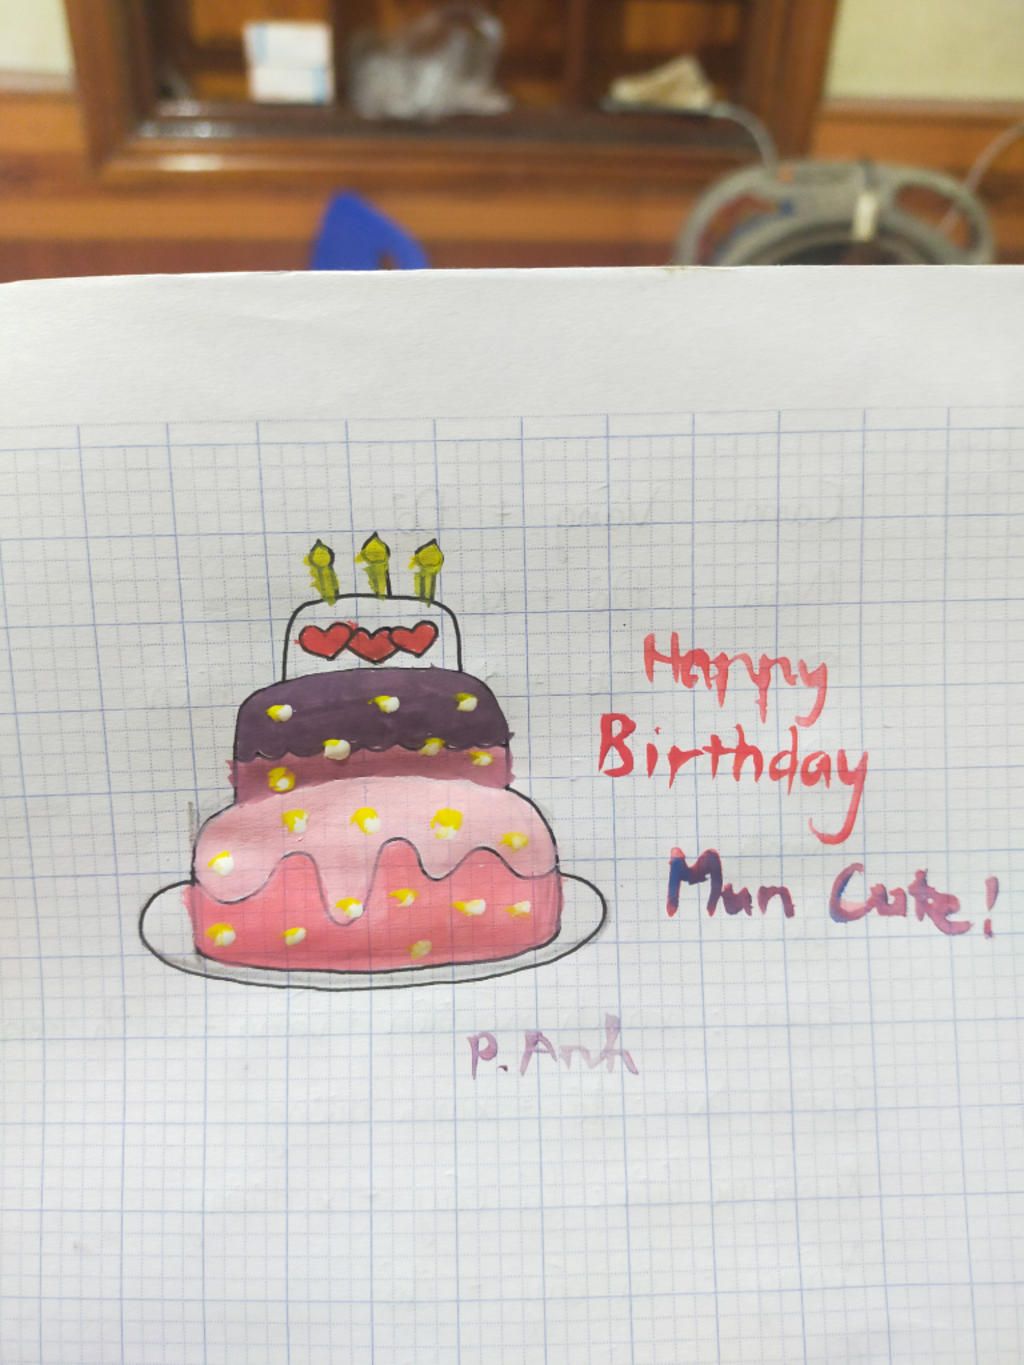 Happy
Birthday
Mun Cute!
P. Anh